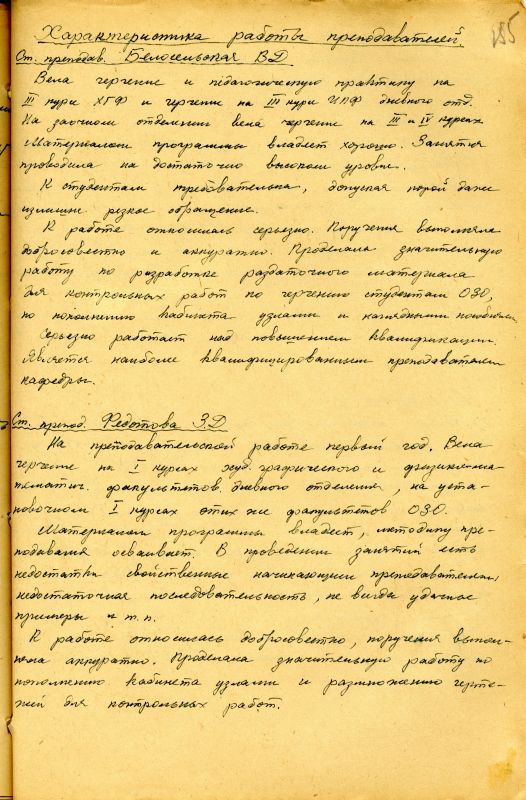 185
Характеристика работы преподавателей.
Ст. преподав. Белосельская В Д
Вела черчение и педагогическую практику на
III курсе ХГФ и черчение на III курсе ИПФ дневного отд.
На заочном отделении вела черчение на III и IV курсах
Материалом программы владеет хорошо. Занятия
проводила на достаточно высоком уровне.
К студентам требовательна, допуская порой даже
излишне резкое обращение.
К работе относилась серьезно. Поручения выполняла
добросовестно и аккуратно. Проделала значительную
работу по разработке раздаточного материала
для контрольных работ по черчению студентам ОЗО,
по пополнению кабинета узлами и наглядными пособиями.
Серьезно работает над повышением квалификации.
Является наиболее квалифицированным преподавателем
кафедры.
Ст. препод. Федотова З.Д
На преподавательской работе первый год. Вела
черчение на I курсах худ. графического и физико-ма-
тематич. факультетов дневного отделения, на уста-
новочном I курсах этих же факультетов ОЗО.
Материалом программы владеет, методику пре-
подавания осваивает. В проведении занятий есть
недостатки свойственные начинающим преподавателям,
недостаточная последовательность, не всегда удачные
примеры и т.п.
К работе относилась добросовестно, поручения выпол-
няла аккуратно. Проделала значительную работу по
пополнению кабинета узлами и размножению черте-
жей для контрольных работ.